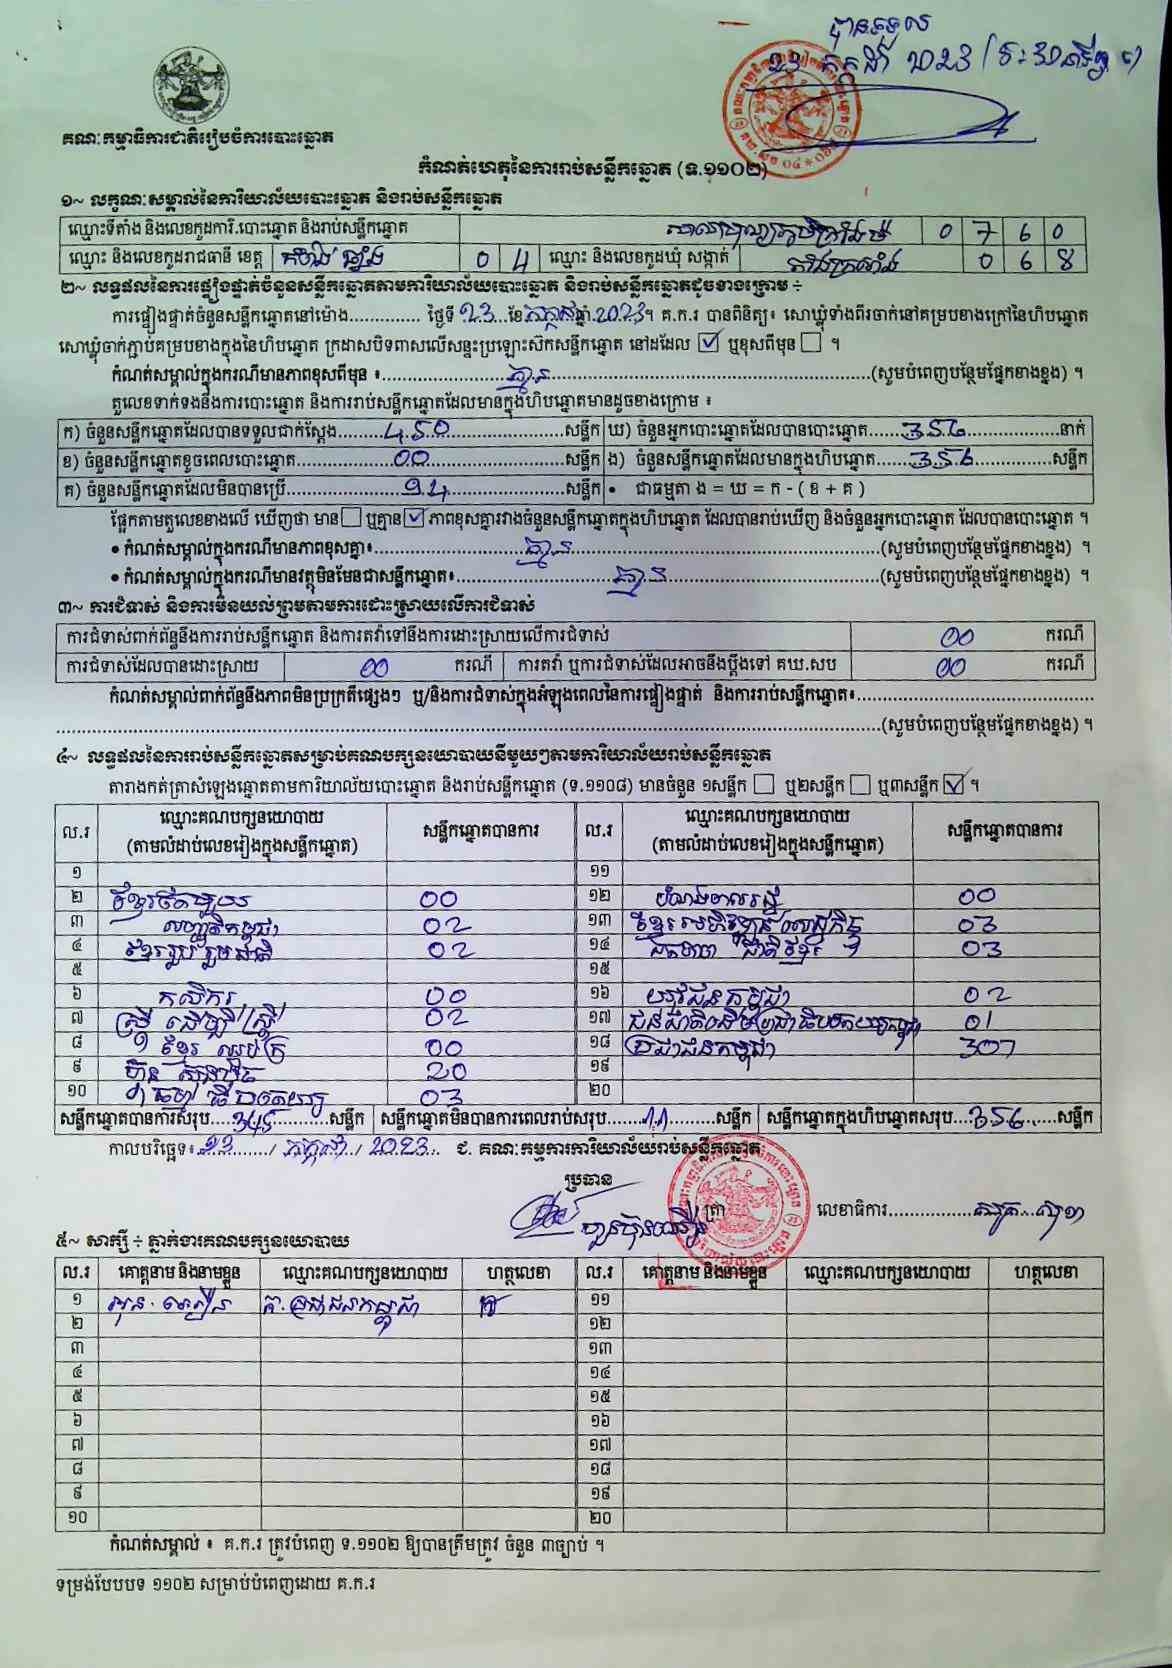 បានទទួល
23 កក្កដា 2023
គណៈកម្មាធិការជាតិរៀបចំការបោះឆ្នោត
កំណត់ហេតុនៃការរាប់សន្លឹកឆ្នោត (ទ.១១០២)
១~ លក្ខណៈសម្គាល់នៃការិយាល័យបោះឆ្នោត និងរាប់សន្លឹកឆ្នោត
ឈ្មោះទីតាំង និងលេខកូដការិ.បោះឆ្នោត និងរាប់សន្លឹកឆ្នោត 0 7 6 0
ឈ្មោះ និងលេខកូដរាជធានី ខេត្ត កំពង់ឆ្នាំង 0 4 ឈ្មោះ និងលេខកូដឃុំ សង្កាត់ តាំងក្រសាំង 0 6 8
២~ លទ្ធផលនៃការផ្ទៀងផ្ទាត់ចំនួនសន្លឹកឆ្នោតតាមការិយាល័យបោះឆ្នោត និងរាប់សន្លឹកឆ្នោតដូចខាងក្រោម ÷
ការផ្ទៀងផ្ទាត់ចំនួនសន្លឹកឆ្នោតនៅម៉ោង.............. ថ្ងៃទី 23 ខែ កក្កដា ឆ្នាំ 2023 ។ គ.ក.រ បានពិនិត្យ៖ សោឃ្លុំទាំងពីរចាក់នៅគម្របខាងក្រៅនៃហិបឆ្នោត
សោឃ្លុំចាក់ភ្ជាប់គម្របខាងក្នុងនៃហិបឆ្នោត ក្រដាសបិទពាសលើសន្ទះប្រឡោះស៊កសន្លឹកឆ្នោត នៅដដែល ☑ ឬខុសពីមុន ☐ ។
កំណត់សម្គាល់ក្នុងករណីមានភាពខុសពីមុន ៖ គ្មាន (សូមបំពេញបន្ថែមផ្នែកខាងខ្នង) ។
តួលេខទាក់ទងនឹងការបោះឆ្នោត និងការរាប់សន្លឹកឆ្នោតដែលមានក្នុងហិបឆ្នោតមានដូចខាងក្រោម ៖
ក) ចំនួនសន្លឹកឆ្នោតដែលបានទទួលជាក់ស្ដែង 450 សន្លឹក ឃ) ចំនួនអ្នកបោះឆ្នោតដែលបានបោះឆ្នោត 356 នាក់
ខ) ចំនួនសន្លឹកឆ្នោតខូចពេលបោះឆ្នោត 00 សន្លឹក ង) ចំនួនសន្លឹកឆ្នោតដែលមានក្នុងហិបឆ្នោត 356 សន្លឹក
គ) ចំនួនសន្លឹកឆ្នោតដែលមិនបានប្រើ 94 សន្លឹក • ជាធម្មតា ង = ឃ = ក - ( ខ + គ )
ផ្អែកតាមតួលេខខាងលើ ឃើញថា មាន ☐ ឬគ្មាន ☑ ភាពខុសគ្នារវាងចំនួនសន្លឹកឆ្នោតក្នុងហិបឆ្នោត ដែលបានរាប់ឃើញ និងចំនួនអ្នកបោះឆ្នោត ដែលបានបោះឆ្នោត ។
• កំណត់សម្គាល់ក្នុងករណីមានភាពខុសគ្នា៖ គ្មាន (សូមបំពេញបន្ថែមផ្នែកខាងខ្នង) ។
• កំណត់សម្គាល់ក្នុងករណីមានវត្ថុមិនមែនជាសន្លឹកឆ្នោត៖ គ្មាន (សូមបំពេញបន្ថែមផ្នែកខាងខ្នង) ។
៣~ ការជំទាស់ និងការមិនយល់ព្រមតាមការដោះស្រាយលើការជំទាស់
ការជំទាស់ពាក់ព័ន្ធនឹងការរាប់សន្លឹកឆ្នោត និងការតវ៉ាទៅនឹងការដោះស្រាយលើការជំទាស់ 00 ករណី
ការជំទាស់ដែលបានដោះស្រាយ 00 ករណី ការតវ៉ា ឬការជំទាស់ដែលអាចនឹងប្ដឹងទៅ គឃ.សប 00 ករណី
កំណត់សម្គាល់ពាក់ព័ន្ធនឹងភាពមិនប្រក្រតីផ្សេងៗ ឬ/និងការជំទាស់ក្នុងអំឡុងពេលនៃការផ្ទៀងផ្ទាត់ និងការរាប់សន្លឹកឆ្នោត៖
(សូមបំពេញបន្ថែមផ្នែកខាងខ្នង) ។
៤~ លទ្ធផលនៃការរាប់សន្លឹកឆ្នោតសម្រាប់គណបក្សនយោបាយនីមួយៗតាមការិយាល័យរាប់សន្លឹកឆ្នោត
តារាងកត់ត្រាសំឡេងឆ្នោតតាមការិយាល័យបោះឆ្នោត និងរាប់សន្លឹកឆ្នោត (ទ.១១០៨) មានចំនួន ១សន្លឹក ☐ ឬ២សន្លឹក ☐ ឬ៣សន្លឹក ☑ ។
ល.រ ឈ្មោះគណបក្សនយោបាយ សន្លឹកឆ្នោតបានការ ល.រ ឈ្មោះគណបក្សនយោបាយ សន្លឹកឆ្នោតបានការ
(តាមលំដាប់លេខរៀងក្នុងសន្លឹកឆ្នោត) (តាមលំដាប់លេខរៀងក្នុងសន្លឹកឆ្នោត)
១ ១១
២ ខ្មែរតែមួយ 00 ១២ 00
៣ សញ្ជាតិកម្ពុជា 02 ១៣ ខ្មែរអភិវឌ្ឍន៍សេដ្ឋកិច្ច 03
៤ ខ្មែររួបរួមជាតិ 02 ១៤ ជាតិខ្មែរ 03
៥ ១៥
៦ កសិករ 00 ១៦ យុវជនកម្ពុជា 02
៧ ស្ត្រីដើម្បីស្ត្រី 02 ១៧ ជនជាតិដើមប្រជាធិបតេយ្យកម្ពុជា 01
៨ ខ្មែរ 00 ១៨ ប្រជាជនកម្ពុជា 307
៩ ហ៊្វុនស៊ិនប៉ិច 20 ១៩
១០ ធម្មាធិបតេយ្យ 03 ២០
សន្លឹកឆ្នោតបានការសរុប 345 សន្លឹក សន្លឹកឆ្នោតមិនបានការពេលរាប់សរុប 11 សន្លឹក សន្លឹកឆ្នោតក្នុងហិបឆ្នោតសរុប 356 សន្លឹក
កាលបរិច្ឆេទ៖ 23 / កក្កដា / 2023 ជ. គណៈកម្មការការិយាល័យរាប់សន្លឹកឆ្នោត
ប្រធាន
ត្រា លេខាធិការ
៥~ សាក្សី ÷ ភ្នាក់ងារគណបក្សនយោបាយ
ល.រ គោត្តនាម និងនាមខ្លួន ឈ្មោះគណបក្សនយោបាយ ហត្ថលេខា ល.រ គោត្តនាម និងនាមខ្លួន ឈ្មោះគណបក្សនយោបាយ ហត្ថលេខា
១ គ.ប្រជាជនកម្ពុជា ១១
២ ១២
៣ ១៣
៤ ១៤
៥ ១៥
៦ ១៦
៧ ១៧
៨ ១៨
៩ ១៩
១០ ២០
កំណត់សម្គាល់ ៖ គ.ក.រ ត្រូវបំពេញ ទ.១១០២ ឱ្យបានត្រឹមត្រូវ ចំនួន ៣ច្បាប់ ។
ទម្រង់បែបបទ ១១០២ សម្រាប់បំពេញដោយ គ.ក.រ